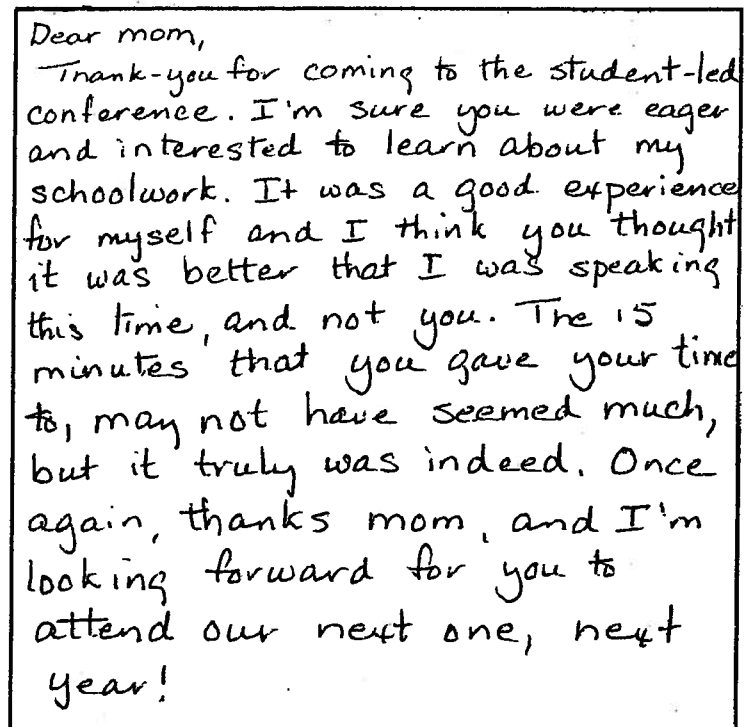 Dear mom,
Thank-you for coming to the student-led
conference. I'm sure you were eager
and interested to learn about my
schoolwork. It was a good experience
for myself and I think you thought
it was better that I was speaking
this time, and not you. The 15
minutes that you gave your time
to, may not have seemed much,
but it truly was indeed. Once
again, thanks mom, and I'm
looking forward for you to
attend our next one, next
year!